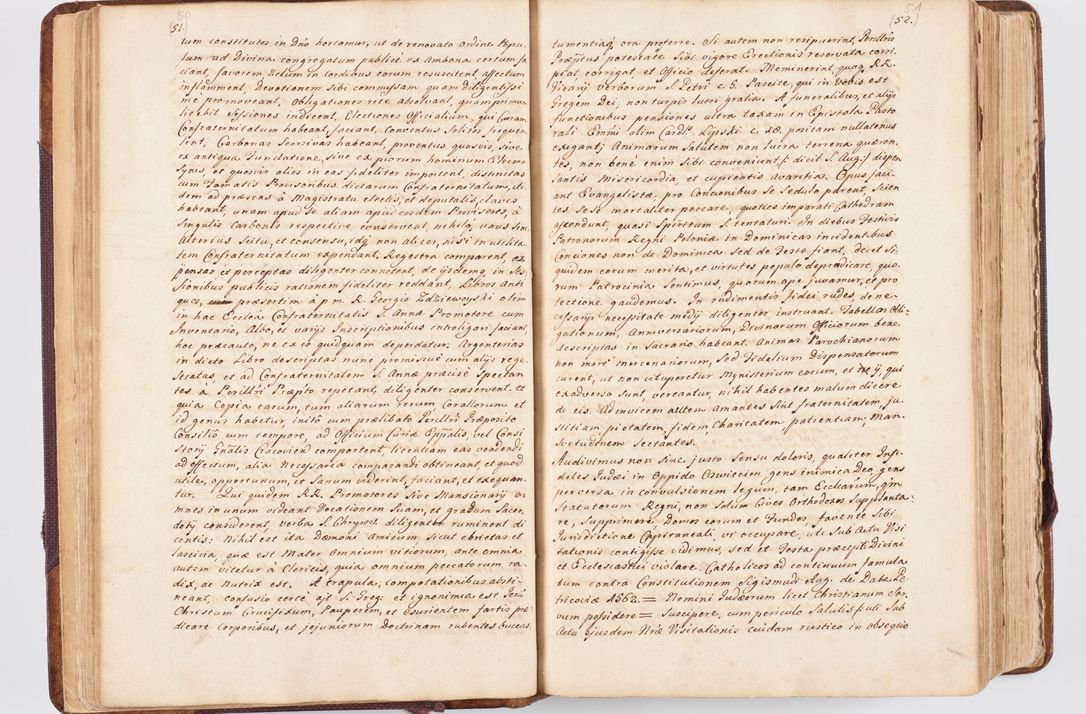 50
(51.)
tum constitutos in Dno hortamur, ut de renovato ordine Popu-
lum ad Divina congregatum publice ex Ambona certum fa-
ciant, favorem Zelum in Cordibus eorum resuscitent, affectum
inflamment, Devotionem sibi commissam quam Diligentissi-
me promoveant, Obligationes rite absolvant, quamprimum
licebit Sessiones indicent, Electiones Officialium, qui Curam
Confraternitatum habeant, faciant, Conventus Solitos frequen-
tent, Carbonas Securivas habeant, proventus quosvis, sive
ex antiqua Fundatione, sive ex piorum hominum Eleemo-
synis, et quosvis alios in eas fideliter importent, distinctas
cum Tomatis Provisoribus dictarum Confraternitatum, iti-
dem ad præsens à Magistratu electis, et deputatis, claves
habeant, unam apud se aliam apud eosdem Provisores, à
singulis Carbonis respective conservent, nihilq; unus sine
Alterius Scitu, et consensu, idq; non aliter, nisi in utilita-
tem Confraternitatum expendant, Regestra comparent, ex-
pensas et perceptas diligenter connotent, de ijsdemq; in Ses-
sionibus publicis rationem fideliter reddant, Libros anti-
quos, præsertim à p. m. R. Georgio Zdziewoyski olim
in hac Ecclea Confraternitatis S. Annæ Promotore cum
Inventario, Albo, et varijs Inscriptionibus introligari faciant,
hoc præcaute, ne ex eo quidquam deperdatur. Argenterias
in dicto Libro descriptas nunc promiscuè cum alijs rege-
stratas, et ad Confraternitatem S. Annæ præcise Spectan-
tes à Perillri Præpto repetant, diligenter conservent, et
quia Copia earum, tum aliarum rerum, Corallorum et
id genus habetur, initô cum prælibato Perillri Præposito
Consilio cum tempore, ad Officium Curiæ Eppalis, vel Consi-
storij Gnalis Cracovien comportent, licentiam eas vendendi
ad effectum, alia Necessaria comparandi obtineant, et quod
utile, opportunum, et Sanum viderint, faciant, et exequan-
tur. Qui quidem RR. Promotores Sive Mansionarij o-
mnes in unum videant Vocationem Suam, et gradum Sacer-
dotij considerent, verba S. Chrysost. diligenter ruminent di-
centis: Nihil est ita Dæmoni Amicum, sicut ebrietas et
lascivia, quæ est Mater Omnium vitiorum, ante omnia
autem vitetur à Clericis, quia omnium peccatorum ra-
dix, ac Nutrix est. A Crapula, computationibus absti-
neant, confusio certe ajt S. Greg: et ignominia est Jesū
Christum Crucifixum, Pauperem, et Esurientem fartis præ-
dicare Corporibus, et jejuniorum Doctrinam rubentes buccas,
51
(52.)
tumentiaq; ora proferre. Si autem non resipuerint, Perillris
Præptus potestate Sibi vigore Erectionis reservata corri-
piat corrigat et Officio deferat. Meminerint quoq; RR.
Vicarij verborum S. Petri c. 5. Pascite, qui in vobis est
Gregem Dei, non turpis lucri gratia. A funeralibus, et alijs
functionibus pensiones ultra taxam in Epistola Pasto-
rali Emmi olim Cardlis Lipski positam nullatenus
exigant; Animarum Salutem non lucra terrena quæren-
tes, non bene enim sibi conveniunt dicit S. Aug: dispen-
santis Misericordia, et cupientis avaritia. Opus faci-
ant Evangelistæ, pro Concionibus se sedulo parent, Scien-
tes se se mortaliter peccare, quoties imparati Cathedram
ascendunt, quasi Spiritum S. tentaturi. In diebus Festivis
Patronorum Regni Poloniæ in Dominicas incidentibus
Conciones non de Dominica Sed de Festo fiant, Decet si-
quidem eorum merita, et virtutes populo depradicare, quo-
rum Patrocinia Sentimus, quorum ope juvamur, et pro-
tectione gaudemus. In rudimentis fidei rudes, de ne-
cessarijs necessitate medij diligenter instruant. Tabellas Obli-
gationum, Anniversariorum, Divinorum Officiorum bene
descriptas in Sacrario habeant. Animas Parochianorum
non more mercenariorum, Sed Fidelium Dispensatorum
curent, ut non vituperetur Mynisterium eorum, et ij, qui
ex adverso sunt, vereantur, nihil habentes malum dicere
de eis. Ad invicem autem Amantes Sint fraternitatem, ju-
stitiam pietatem, fidem, Charitatem patientiam, Man-
svetudinem Sectantes.
Audivimus non Sine justo Sensu doloris, qualiter Infi-
deles Judæi in Oppido Oswiecim gens inimica Deo, gens
perversa in convulsionem Legum, tam Eccliarum, qm
Statutorum Regni, non Solum Cives Orthodoxos Supplanta-
re, Supprimere, Domos eorum et Fundos, favente Sibi
Jurisdictione Capitaneali, vi occupare, uti Sub Actu Visi-
tationis contigisse vidimus, sed et Festa præcepti Divini
et Ecclesiastici violare. Catholicos ad continuum famula-
tum contra Constitutionem Sigismudi Aug. de Data Pe-
tricoviæ 1562. = Nemini Judæorum licet Christianum Ser-
vum possidere = Suscipere, cum periculo Salutis uti Sub
Actu ejusdem Nræ Visitationis cuidam rustico in obsequio